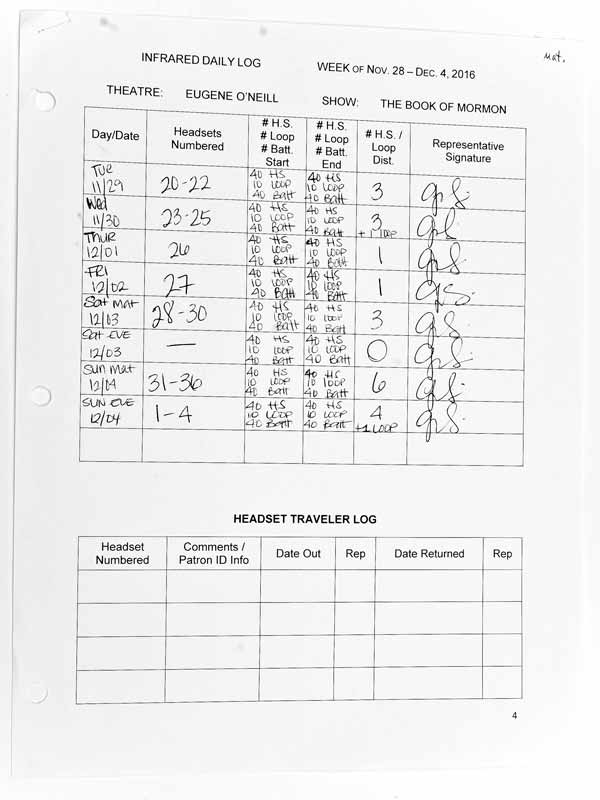 Mat.
INFRARED DAILY LOG WEEK OF NOV. 28 – DEC. 4, 2016
THEATRE: EUGENE O'NEILL SHOW: THE BOOK OF MORMON
Day/Date Headsets Numbered # H.S. # Loop # Batt. Start # H.S. # Loop # Batt. End # H.S. / Loop Dist. Representative Signature
Tue 11/29 20-22 40 HS 10 LOOP 40 Batt 40 HS 10 LOOP 40 Batt 3
Wed 11/30 23-25 40 HS 10 LOOP 40 Batt 40 HS 10 LOOP 40 Batt 3 + 1 loop
Thur 12/01 26 40 HS 10 LOOP 40 Batt 40 HS 10 LOOP 40 Batt 1
FRI 12/02 27 40 HS 10 LOOP 40 Batt 40 HS 10 LOOP 40 Batt 1
Sat Mat 12/03 28-30 40 HS 10 LOOP 40 Batt 40 HS 10 LOOP 40 Batt 3
Sat EVE 12/03 — 40 HS 10 LOOP 40 Batt 40 HS 10 LOOP 40 Batt 0
Sun Mat 12/04 31-36 40 HS 10 LOOP 40 Batt 40 HS 10 loop 40 Batt 6
SUN EVE 12/04 1-4 40 HS 10 LOOP 40 Batt 40 HS 10 LOOP 40 Batt 4 +1 LOOP
HEADSET TRAVELER LOG
Headset Numbered Comments / Patron ID Info Date Out Rep Date Returned Rep
4